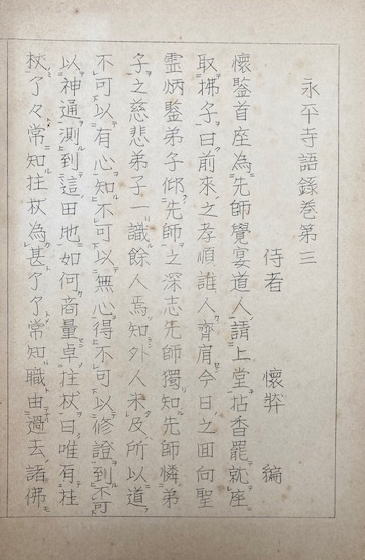 永平寺語録巻第三
侍者 懷弉 編
懷鑒首座為先師覺宴道人請上堂拈香罷就座
取拂子曰前來之孝順誰人齊肩今日之面向聖
霊炳鑒弟子仰先師之深志先師獨知先師憐弟
子之慈悲弟子一識餘人焉知外人未及所以道
不可以有心知不可以無心得不可以修證到不可
以神通測到這田地如何商量卓拄杖曰唯有拄
杖了々常知拄杖為甚了了常知職由過去諸佛